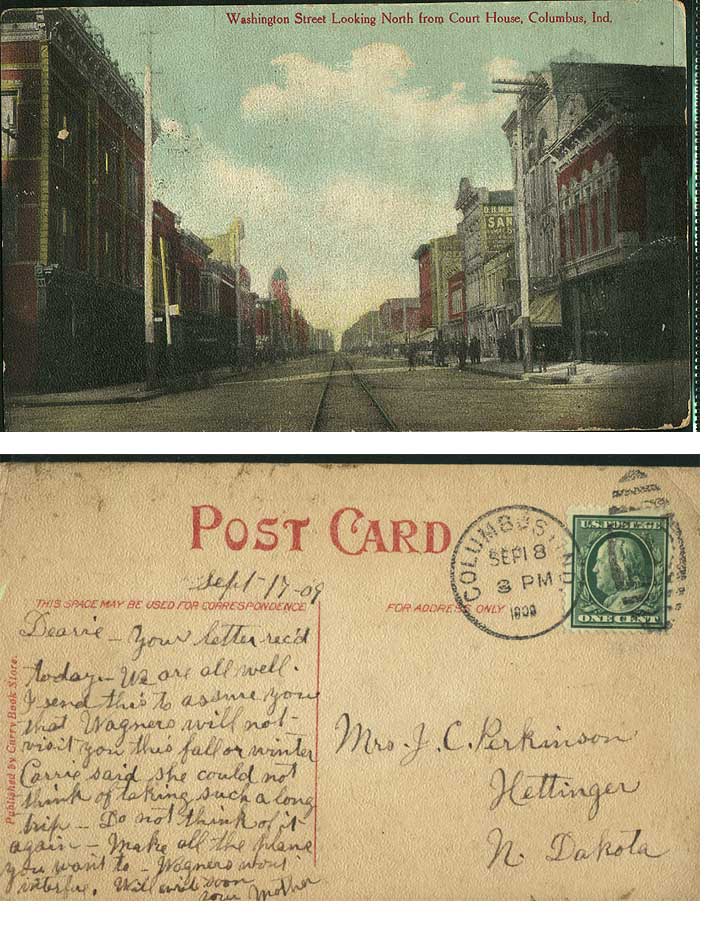 Washington Street Looking North from Court House, Columbus, Ind.
SAN
POST CARD
COLUMBUS IND
SEP 18
3 PM
1909
U.S. POSTAGE
ONE CENT
Sept-17-09
THIS SPACE MAY BE USED FOR CORRESPONDENCE
FOR ADDRESS ONLY
Published by Carry Book Store.
Dearie - Your letter rec'd
today - We are all well.
I send this to assure you
that Wagners will not
visit you this fall or winter
Carrie said she could not
think of taking such a long
trip - Do not think of it
again - Make all the plans
you want to - Wagners won't
interfere. Will write soon
your Mother
Mrs. J. C. Perkinson
Hettinger
N. Dakota